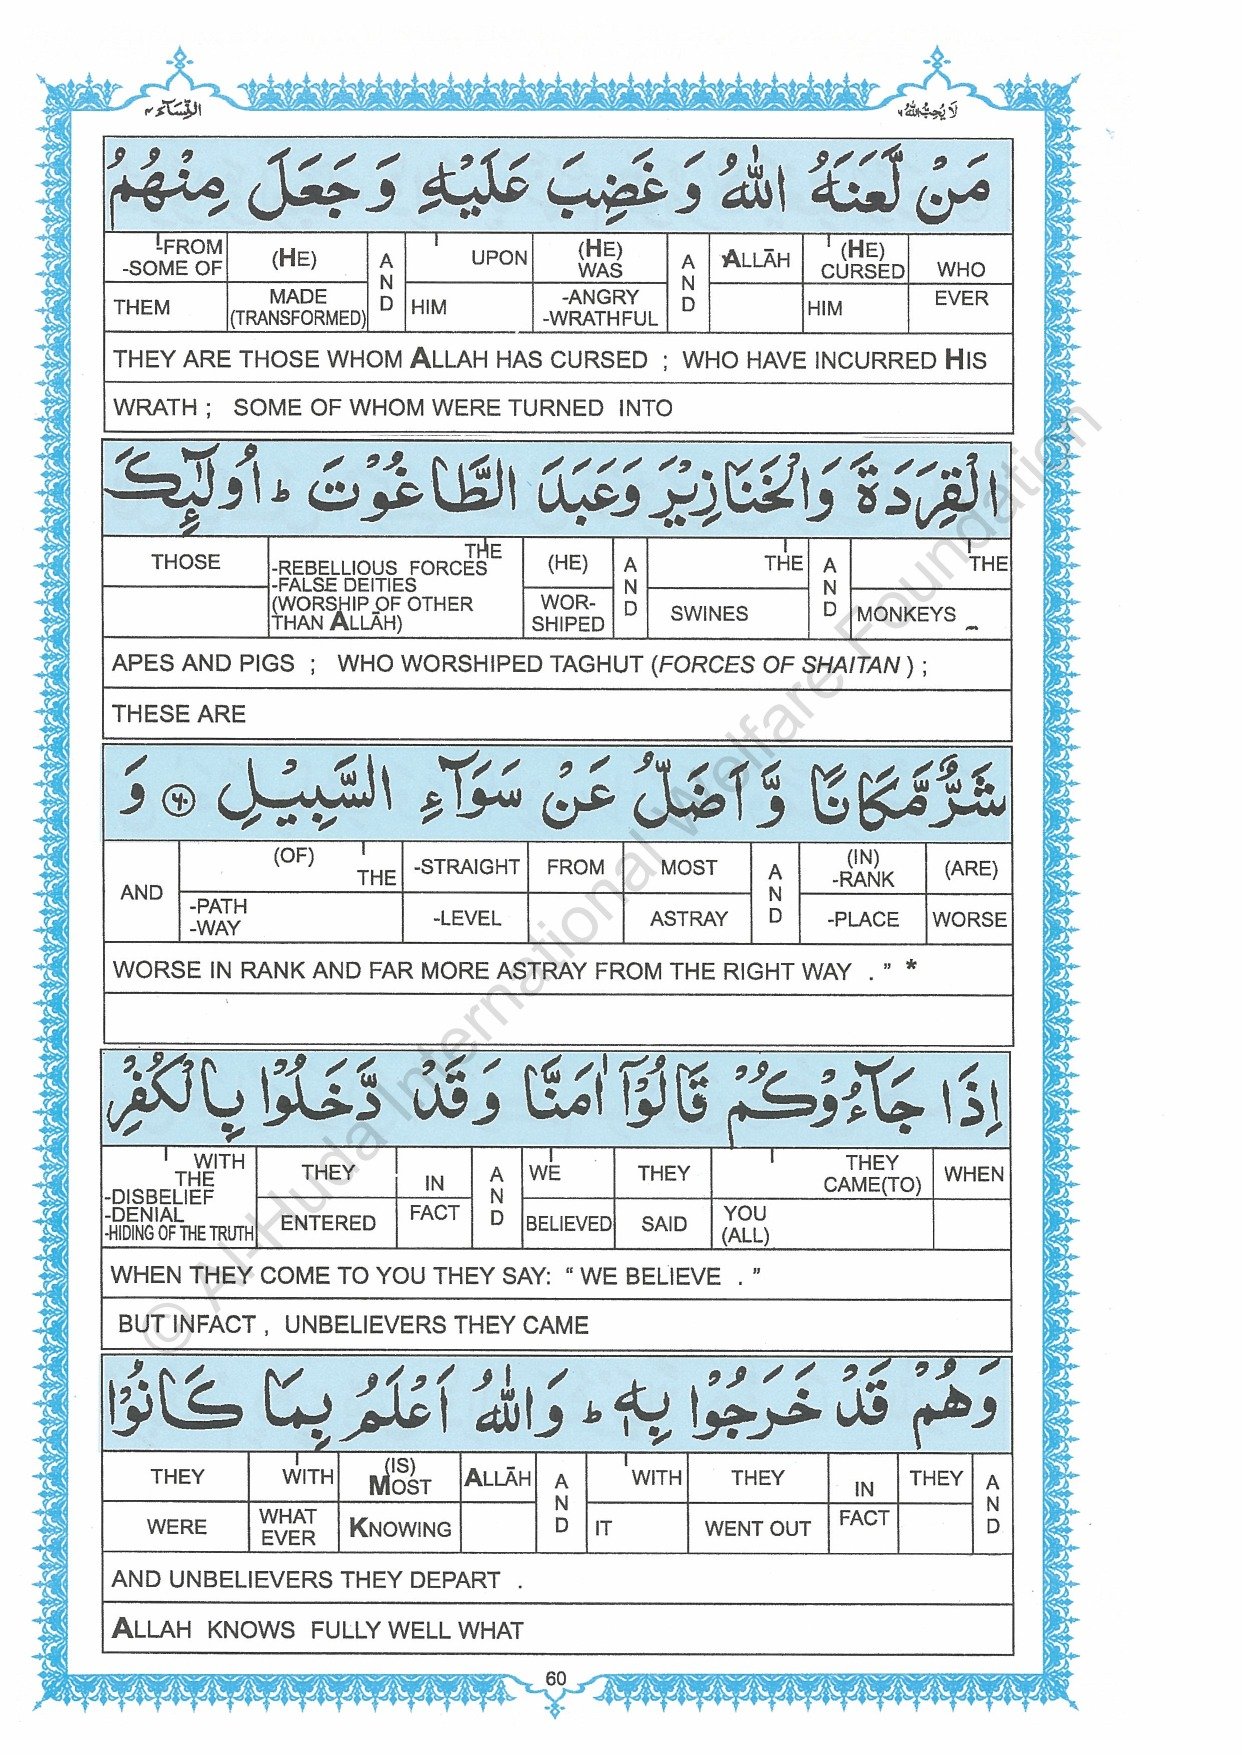 النِّسَآء ٤
لَا يُحِبُّ اللّٰهُ ٦
مَنْ لَّعَنَهُ اللّٰهُ وَ غَضِبَ عَلَيْهِ وَ جَعَلَ مِنْهُمُ
-FROM (HE) A UPON (HE) A ALLĀH (HE) WHO
-SOME OF N WAS N CURSED
THEM MADE D HIM -ANGRY D HIM EVER
(TRANSFORMED) -WRATHFUL
THEY ARE THOSE WHOM ALLAH HAS CURSED ; WHO HAVE INCURRED HIS
WRATH ; SOME OF WHOM WERE TURNED INTO
الْقِرَدَةَ وَالْخَنَازِيْرَ وَعَبَدَ الطَّاغُوْتَ ؕ اُولٰٓئِكَ
THOSE THE (HE) A THE A THE
-REBELLIOUS FORCES N N
-FALSE DEITIES D D
(WORSHIP OF OTHER WOR- SWINES MONKEYS
THAN ALLĀH) SHIPED
APES AND PIGS ; WHO WORSHIPED TAGHUT (FORCES OF SHAITAN ) ;
THESE ARE
شَرٌّ مَّكَانًا وَّ اَضَلُّ عَنْ سَوَآءِ السَّبِيْلِ ۶۰ وَ
AND (OF) -STRAIGHT FROM MOST A (IN) (ARE)
THE N -RANK
-PATH -LEVEL ASTRAY D -PLACE WORSE
-WAY
WORSE IN RANK AND FAR MORE ASTRAY FROM THE RIGHT WAY . ” *
اِذَا جَآءُوْكُمْ قَالُوْٓا اٰمَنَّا وَ قَدْ دَّخَلُوْا بِالْكُفْرِ
WITH THEY IN A WE THEY THEY WHEN
THE N CAME(TO)
-DISBELIEF ENTERED FACT D BELIEVED SAID YOU
-DENIAL (ALL)
-HIDING OF THE TRUTH
WHEN THEY COME TO YOU THEY SAY: “ WE BELIEVE . ”
BUT INFACT , UNBELIEVERS THEY CAME
وَهُمْ قَدْ خَرَجُوْا بِهٖ ؕ وَاللّٰهُ اَعْلَمُ بِمَا كَانُوْا
THEY WITH (IS) ALLĀH A WITH THEY IN THEY A
MOST N N
WERE WHAT KNOWING D IT WENT OUT FACT D
EVER
AND UNBELIEVERS THEY DEPART .
ALLAH KNOWS FULLY WELL WHAT
60
© Al-Huda International Welfare Foundation